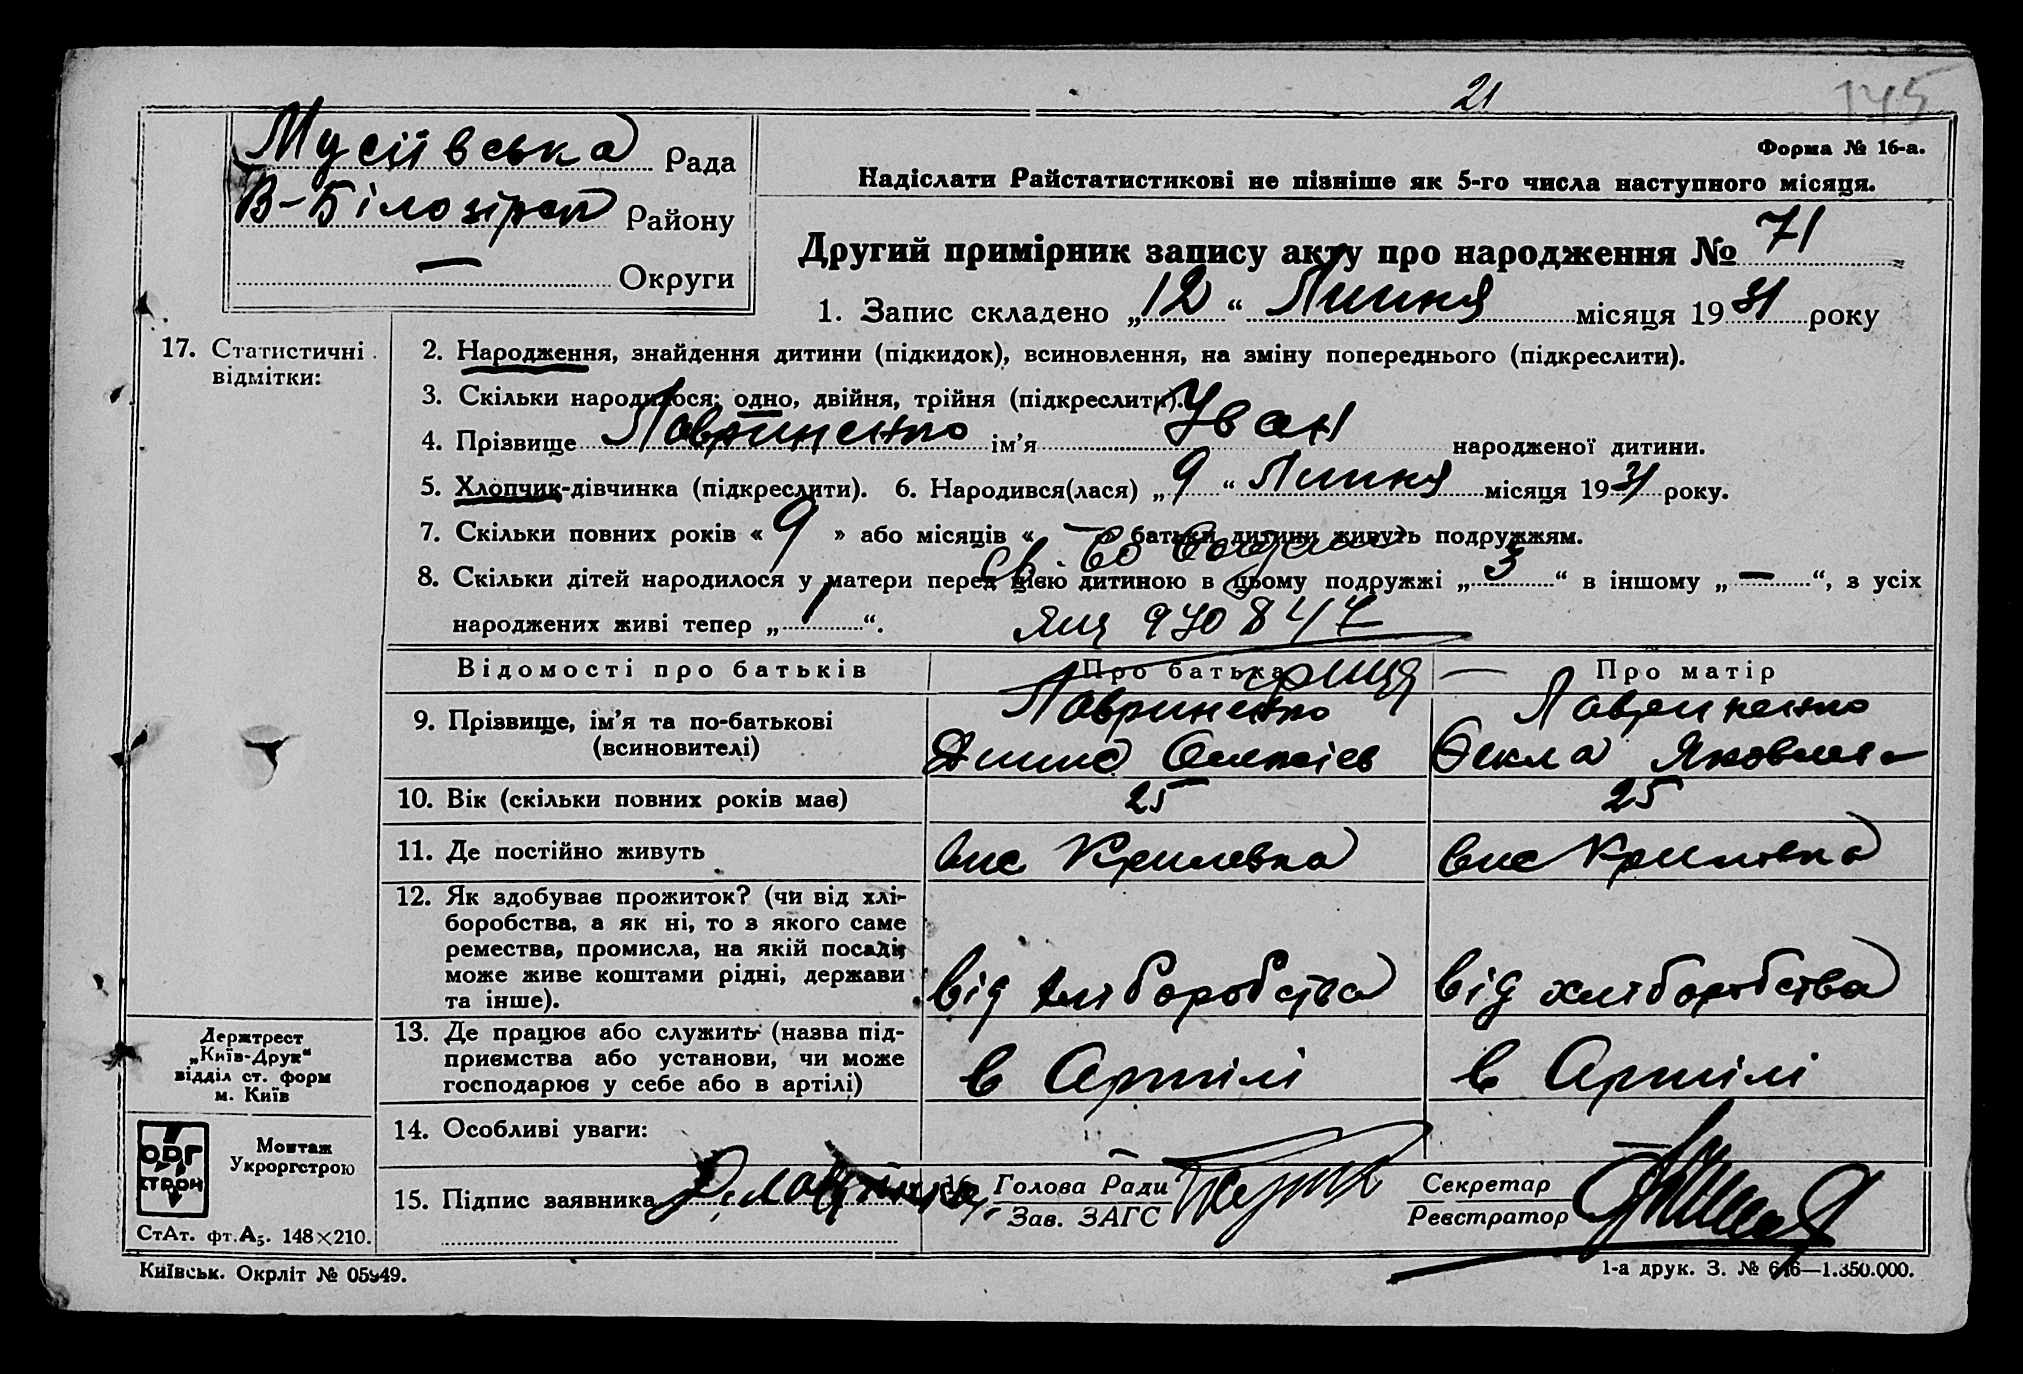 21
145
Мусіївська Рада
В-Білозірсп Району
— Округи
Форма № 16-а.
Надіслати Райстатистикові не пізніше як 5-го числа наступного місяця.
Другий примірник запису акту про народження № 71
1. Запис складено „12“ Липня місяця 1931 року
17. Статистичні відмітки:
2. Народження, знайдення дитини (підкидок), всиновлення, на зміну попереднього (підкреслити).
3. Скільки народилося: одно, двійня, трійня (підкреслити).
4. Прізвище Лавриненко ім’я Іван народженої дитини.
5. Хлопчик-дівчинка (підкреслити). 6. Народився(лася) „9“ Липня місяця 1931 року.
7. Скільки повних років « 9 » або місяців « — » батьки дитини живуть подружжям.
8. Скільки дітей народилося у матери перед цією дитиною в цьому подружжі „3“ в іншому „—“, з усіх
народжених живі тепер „1“.
св-во
ЯЩ 970847
Відомості про батьків
Про батька
Про матір
9. Прізвище, ім’я та по-батькові
(всиновителі)
Лавриненко
Олексієв
Лавриненко
Текла Яковлев
10. Вік (скільки повних років має)
25
25
11. Де постійно живуть
вис Крилевка
вис Крилевка
12. Як здобуває прожиток? (чи від хлі-
боробства, а як ні, то з якого саме
ремества, промисла, на якій посаді,
може живе коштами рідні, держави
та інше).
від хліборобства
від хліборобства
13. Де працює або служить (назва під-
приємства або установи, чи може
господарює у себе або в артілі)
в Артілі
в Артілі
14. Особливі уваги:
15. Підпис заявника
16. Голова Ради
Зав. ЗАГС
Секретар
Реєстратор
Держтрест
„Київ-Друк“
відділ ст. форм
м. Київ
ОРГ
СТРОЙ
Монтаж
Укроргстрою
СтАт. фт.А₅. 148×210.
Київськ. Окрліт № 05949.
1-а друк. З. № 646—1.350.000.